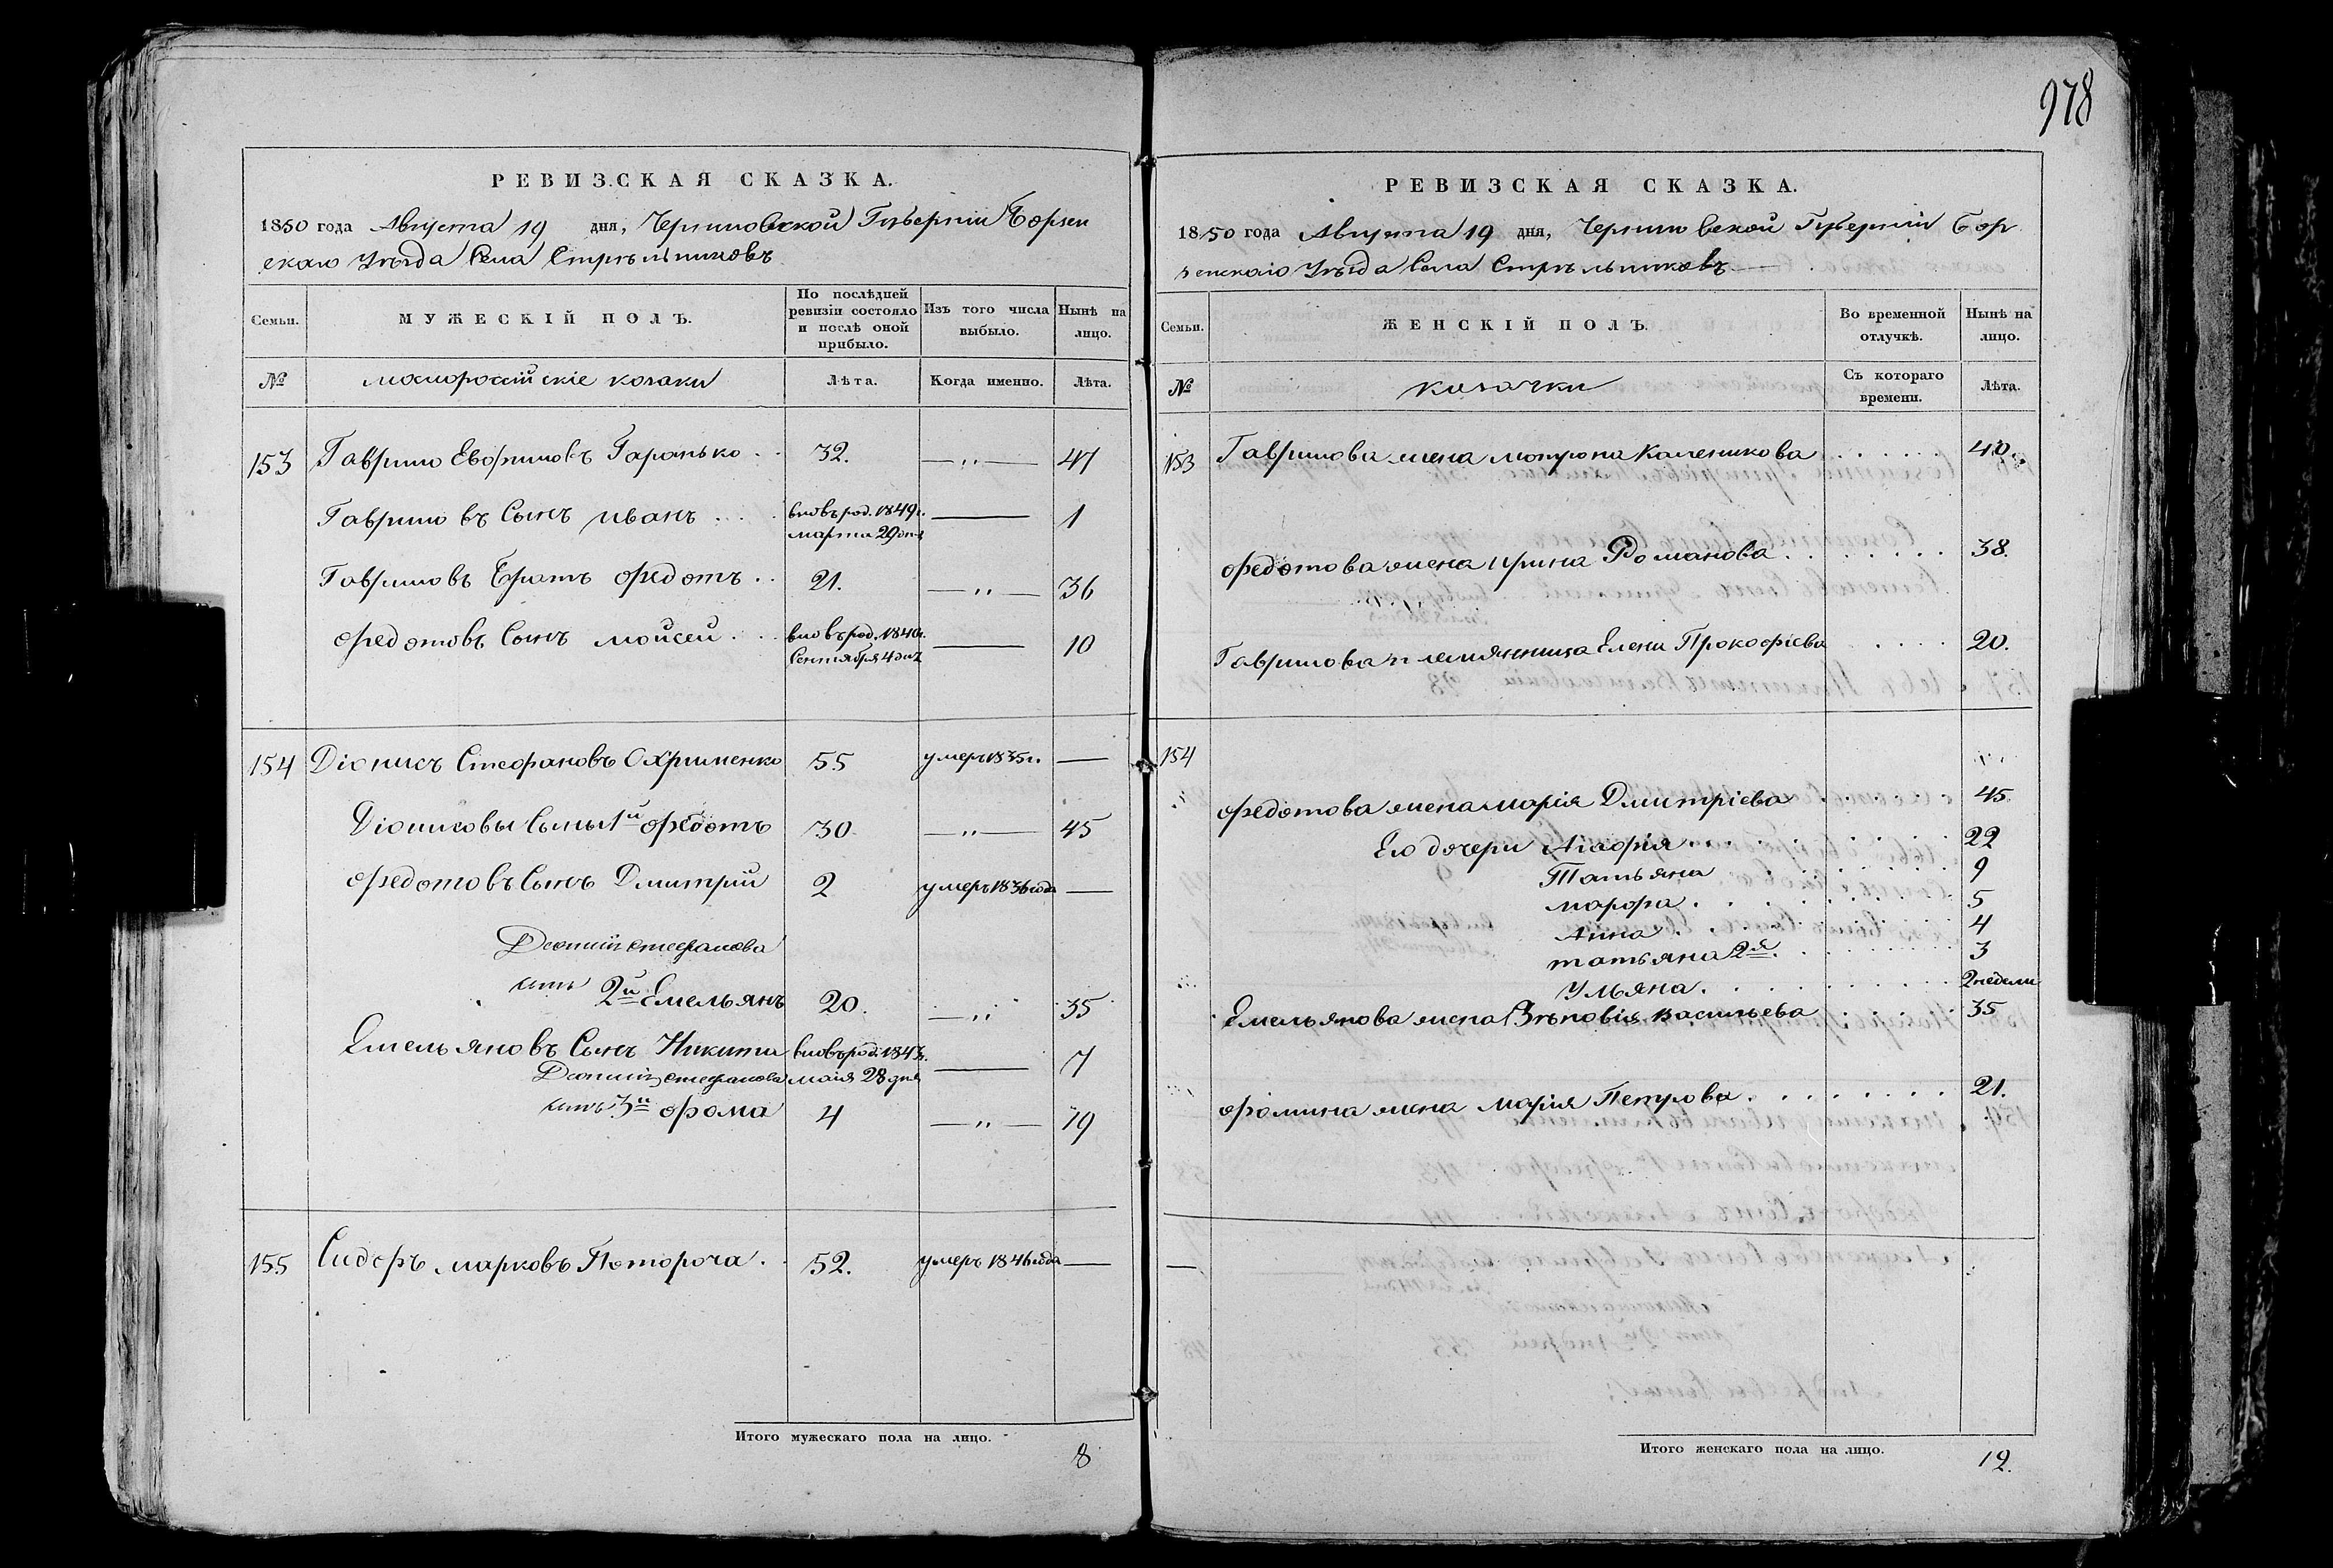 978
РЕВИЗСКАЯ СКАЗКА.
1850 года Августа 19 дня, Черниговской Губерніи Борзен
скаго Уѣзда Села Стрѣльниковъ
Семьи.
МУЖЕСКІЙ ПОЛЪ.
По послѣдней ревизіи состояло и послѣ оной прибыло.
Изъ того числа выбыло.
Нынѣ на лицо.
№
малороссійскіе козаки
Лѣта.
Когда именно.
Лѣта.
153 Гаврило Евфимовъ Гаранько 32. —„— 47
Гавриловъ Сынъ иванъ вновь род. 1849г. марта 29 дня — 1
Гавриловъ Братъ федотъ 21. —„— 36
федотовъ Сынъ мойсей вновь род. 1840г. Сентября 4 дня — 10
154 Діонисъ Стефановъ Охрименко 55 умеръ 1835г. —
Діонисовы Сыны 1й федотъ 30 —„— 45
федотовъ Сынъ Дмитрий 2 умеръ 1836 года —
Деонисія стефанова
сынъ 2й Емельянъ 20. —„— 35
Емельяновъ Сынъ Никита вновь род. 1843г. — 7
Деонисія стефанова маія 28 дня
сынъ 3й фома 4 —„— 19
155 Сидоръ марковъ Потороча 52. умеръ 1846 года —
Итого мужескаго пола на лицо.
8
РЕВИЗСКАЯ СКАЗКА.
1850 года Августа 19 дня, Черниговской Губерніи Бор
зенскаго Уѣзда Села Стрѣльниковъ
Семьи.
ЖЕНСКІЙ ПОЛЪ.
Во временной отлучкѣ.
Нынѣ на лицо.
№
козачки
Съ котораго времени.
Лѣта.
153 Гаврилова жена мотрона Каленикова 40.
федотова жена ирина Романова 38.
Гаврилова племянница Елена Прокофіева 20.
154
федотова жена марія Дмитріева 45
Его дочери Агафія 22
Татьяна 9
марфа 5
Анна 4
татьяна 2я 3
Ульяна 2 недели
Емельянова жена Зѣновія васильева 35
фомина жена марія Петрова 21.
—
Итого женскаго пола на лицо.
12.